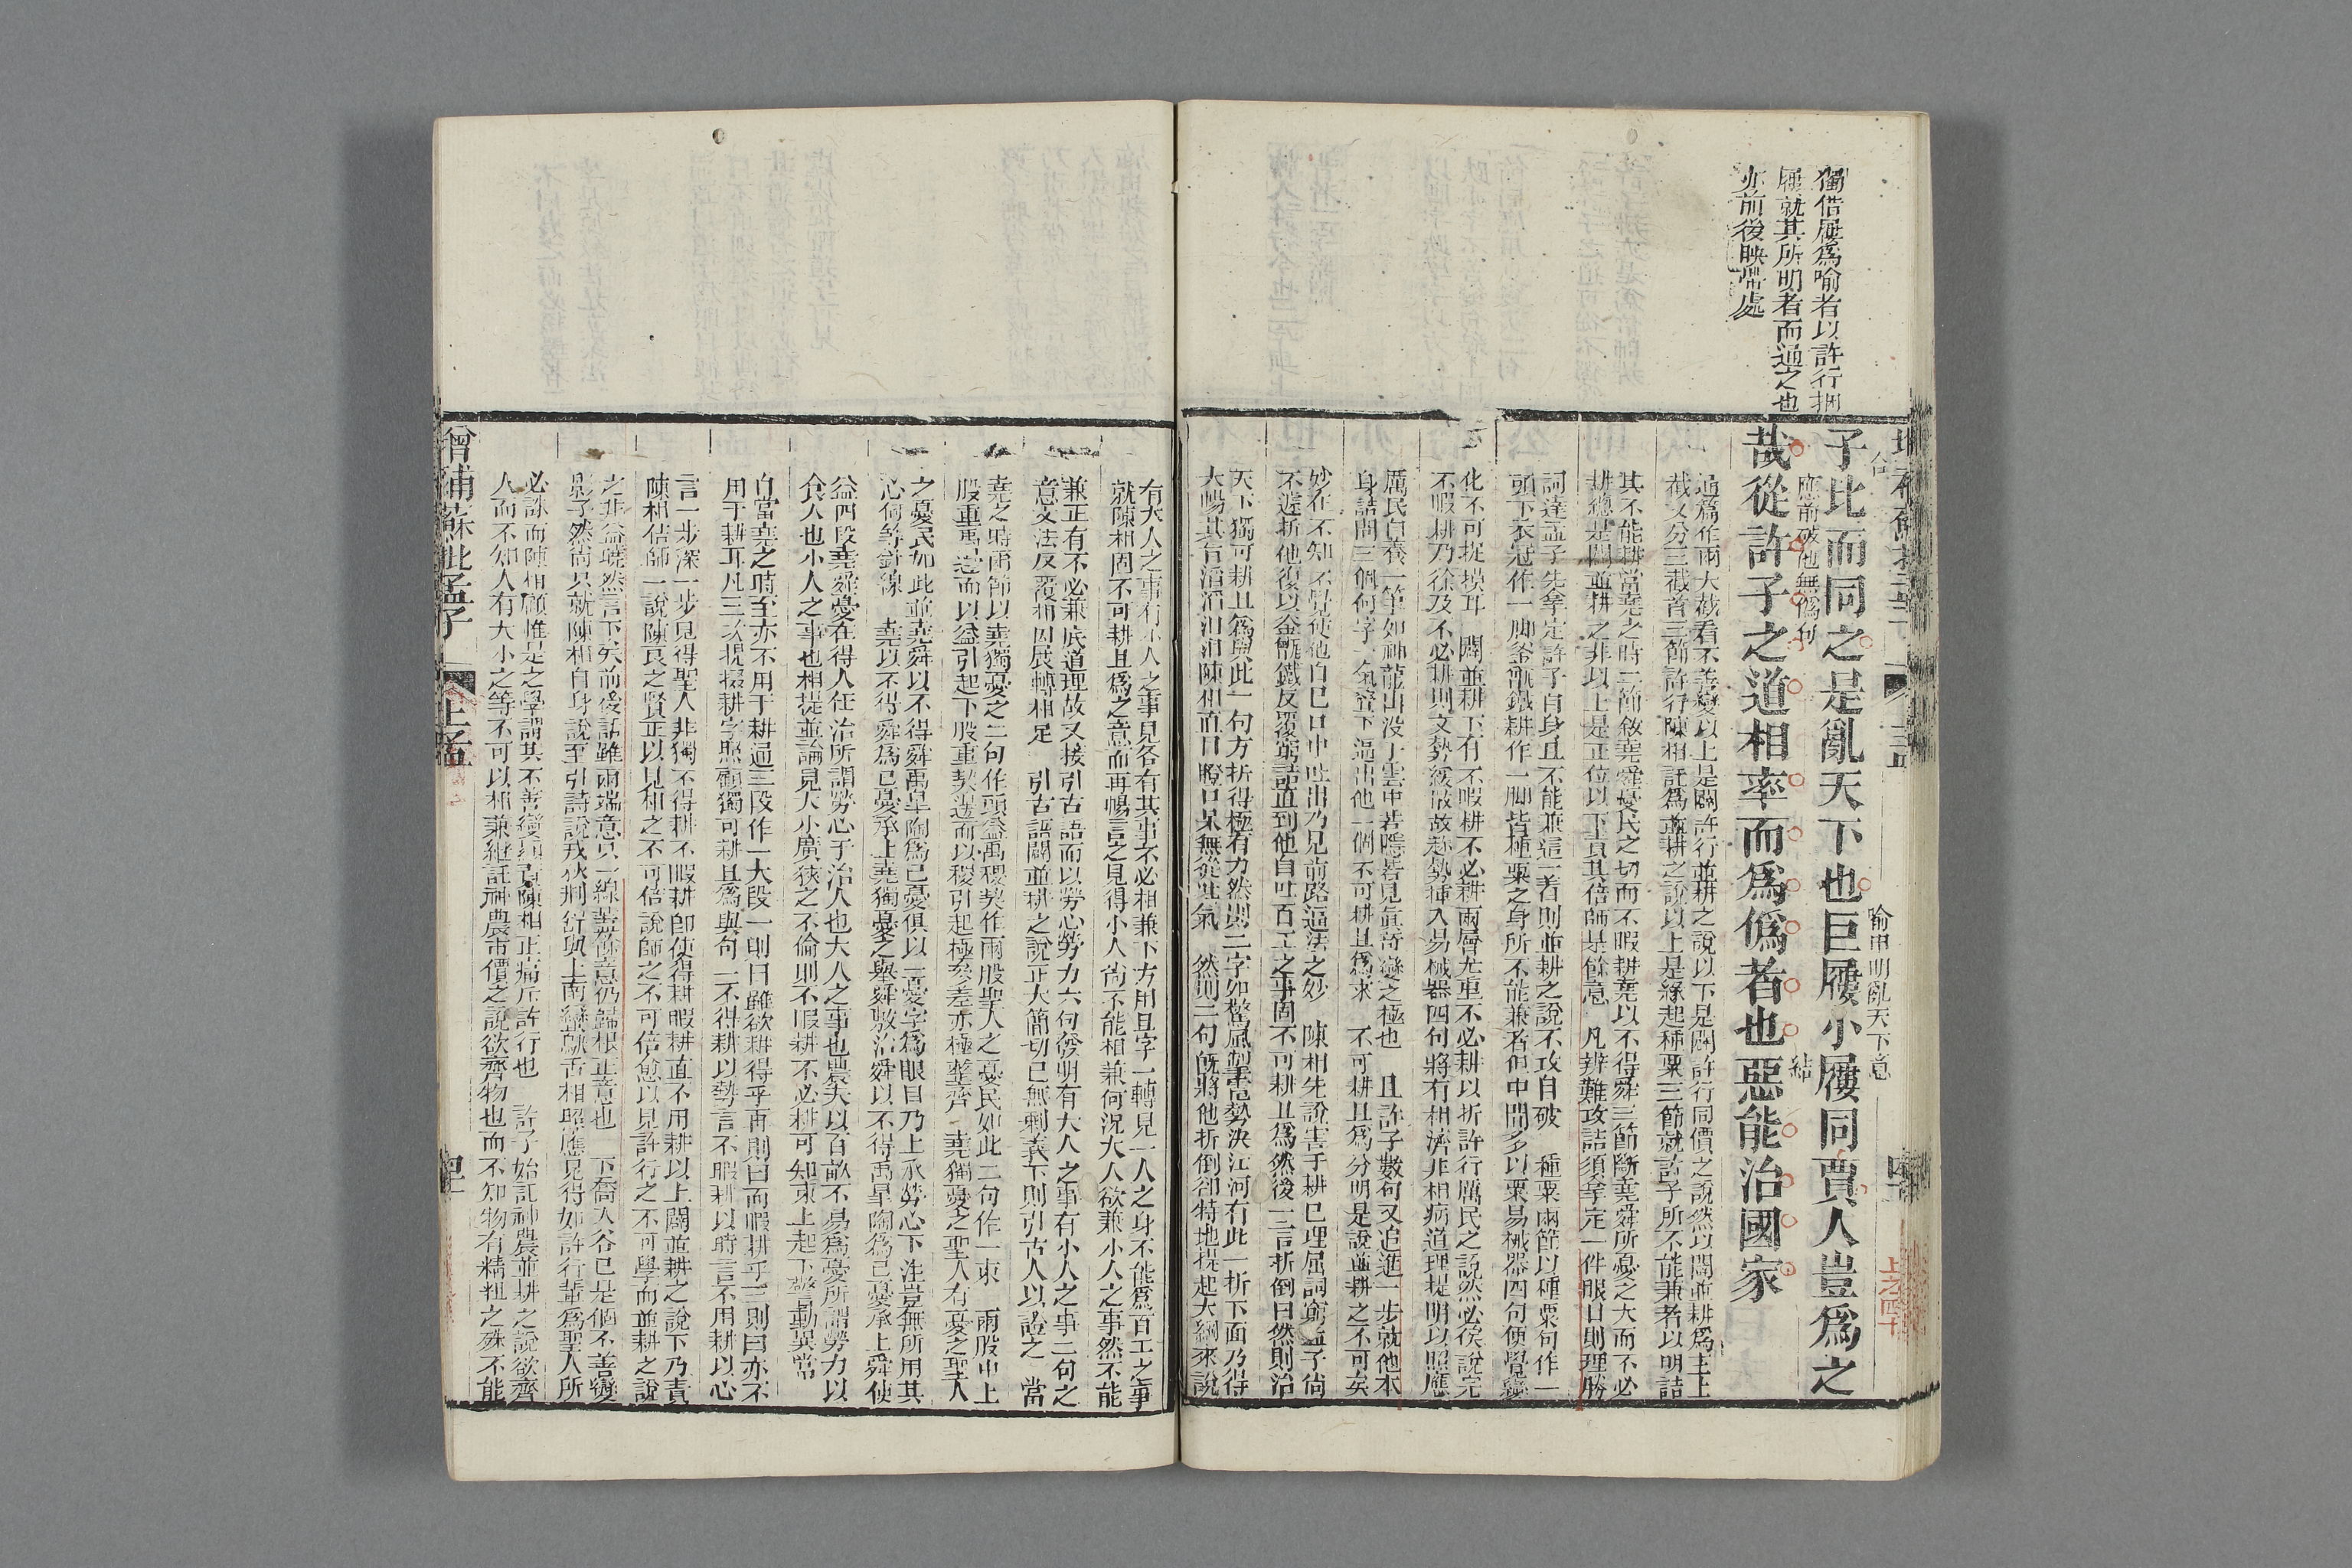 獨借屨爲喻者以許行捆
屨就其所明者而通之也
亦前後映帶處
喻申明亂天下意
子比而同之是亂天下也巨屨小屨同賈人豈爲之
應前破他無僞句
結
哉從許子之道相率而爲僞者也惡能治國家
通篇作兩大截看不善變以上是闢許行並耕之說以下是闢許行同價之說然以闢並耕爲主上
截又分三截首三節許行陳相託爲並耕之說以上是緣起種粟三節就許子所不能兼者以明詰
其不能耕當堯之時二節敘堯舜憂民之切而不暇耕堯以不得舜三節斷堯舜所憂之大而不必
耕總是闢並耕之非以上是正位以下責其倍師是餘意　凡辨難攻詰須拿定一件眼目則理勝
詞達孟子先拿定許子自身且不能兼這一着則並耕之說不攻自破　種粟兩節以種粟句作一
頭下衣冠作一脚釜甑鐵耕作一脚皆極粟之身所不能兼者但中間多以粟易械器四句便覺變
化不可捉摸耳　闢並耕下有不暇耕不必耕兩層尤重不必耕以折許行厲民之說然必俟說完
不暇耕乃徐及不必耕則文勢緩散故趁勢插入易械器四句將有相濟非相病道理提明以照應
厲民自養一筆如神龍出沒于雲中若隱若見眞奇變之極也　且許子數句又追進一步就他本
身詰問三個何字一氣趕下逼出他一個不可耕且爲來　不可耕且爲分明是說並耕之不可矣
妙在不知不覺使他自己口中吐出乃見前路逼法之妙　陳相先說害于耕已理屈詞窮孟子尙
不遽折他復以釜甑鐵反覆窮詰直到他自吐百工之事固不可耕且爲然後一言折倒曰然則治
天下獨可耕且爲與此一句方折得極有力然則二字如驚風掣電勢決江河有此一折下面乃得
大暢其旨滔滔汩汩陳相直口瞪口呆無從吐氣　然則二句旣將他折倒卻特地提起大綱來說
有大人之事有小人之事見各有其事不必相兼下方用且字一轉見一人之身不能爲百工之事
就陳相固不可耕且爲之意而再暢言之見得小人尙不能相兼何況大人欲兼小人之事然不能
兼正有不必兼底道理故又接引古語而以勞心勞力六句發明有大人之事有小人之事二句之
意文法反覆相因展轉相足　引古語闢並耕之說正大簡切已無剩義下則引古人以證之　當
堯之時兩節以堯獨憂之二句作頭益禹稷契作兩股聖人之憂民如此二句作一束　兩股中上
股重禹邊而以益引起下股重契邊而以稷引起極參差亦極整齊　堯獨憂之聖人有憂之聖人
之憂民如此並堯舜以不得舜禹皐陶爲己憂俱以一憂字爲眼目乃上承勞心下注豈無所用其
心何等針線　堯以不得舜爲己憂承上堯獨憂之舉舜敷治舜以不得禹皐陶爲己憂承上舜使
益四段堯舜憂在得人任治所謂勞心于治人也大人之事也農夫以百畝不易爲憂所謂勞力以
食人也小人之事也相提並論見大小廣狹之不倫則不暇耕不必耕可知束上起下警動異常
自當堯之時至亦不用于耕通三段作一大段一則曰雖欲耕得乎再則曰而暇耕乎三則曰亦不
用于耕耳凡三次挽掇耕字照顧獨可耕且爲與句一不得耕以勢言不暇耕以時言不用耕以心
言一步深一步見得聖人非獨不得耕不暇耕卽使得耕暇耕直不用耕以上闢並耕之說下乃責
陳相倍師一說陳良之賢正以見相之不可倍說師之不可倍愈以見許行之不可學而並耕之說
之非益曉然言下矣前後話雖兩端意只一線葢餘意仍歸根正意也　下喬入谷已是個不善變
影子然尙只就陳相自身說至引詩說戎狄荆舒與上南蠻鴃舌相照應見得如許行輩爲聖人所
必誅而陳相顧惟是之學謂其不善變雖責陳相正痛斥許行也　許子始託神農並耕之說欲齊
人而不知人有大小之等不可以相兼繼託神農市價之說欲齊物也而不知物有精粗之殊不能
增補蘇批孟子
上孟
上之四十